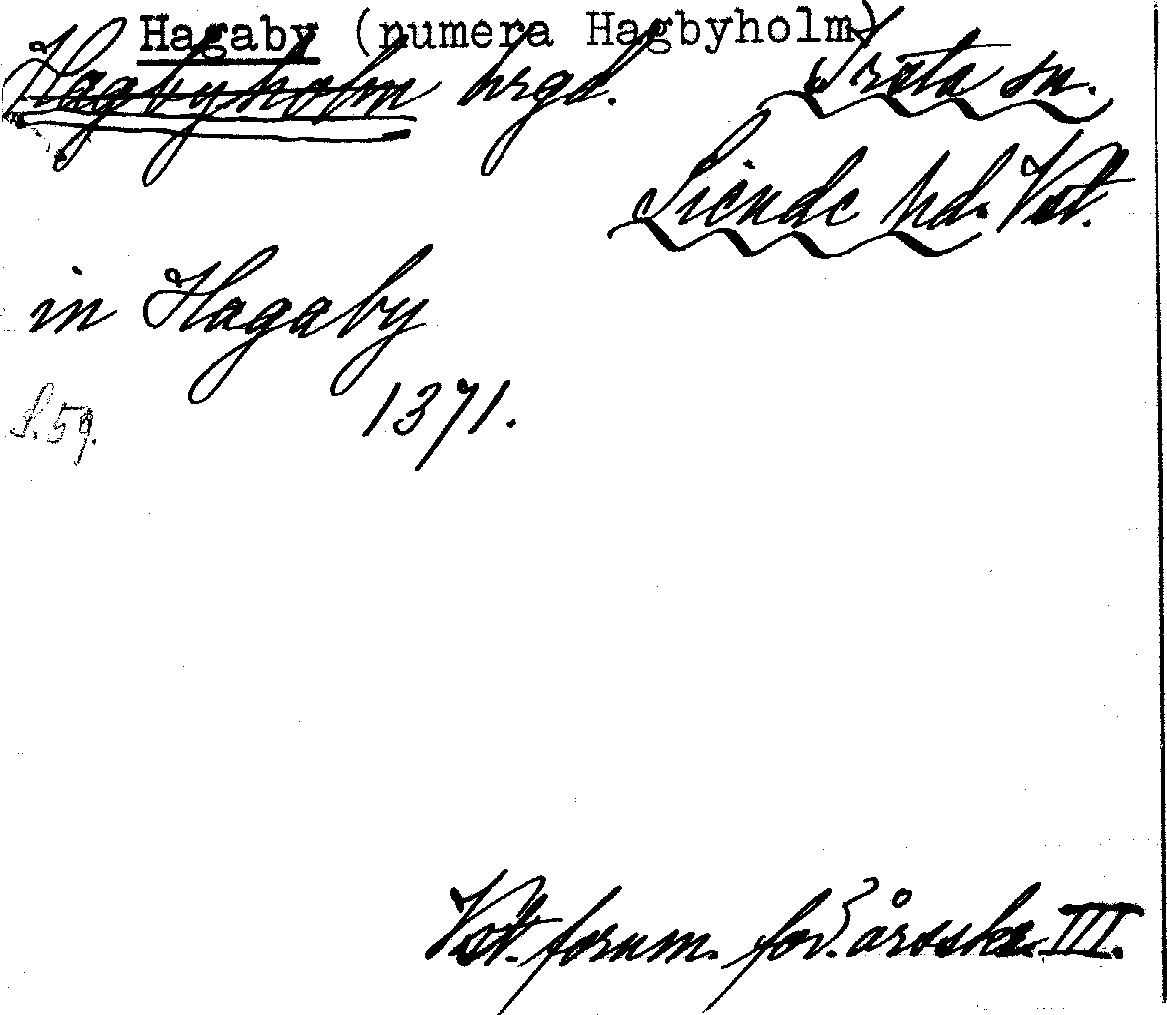 Hagaby (numera Hagbyholm)
Hagbyholm hrgd. Irsta sn.
Siende hd. Vst.
in Hagaby
S. 59. 1371.
Vst. fornm. för. årsskr. III.